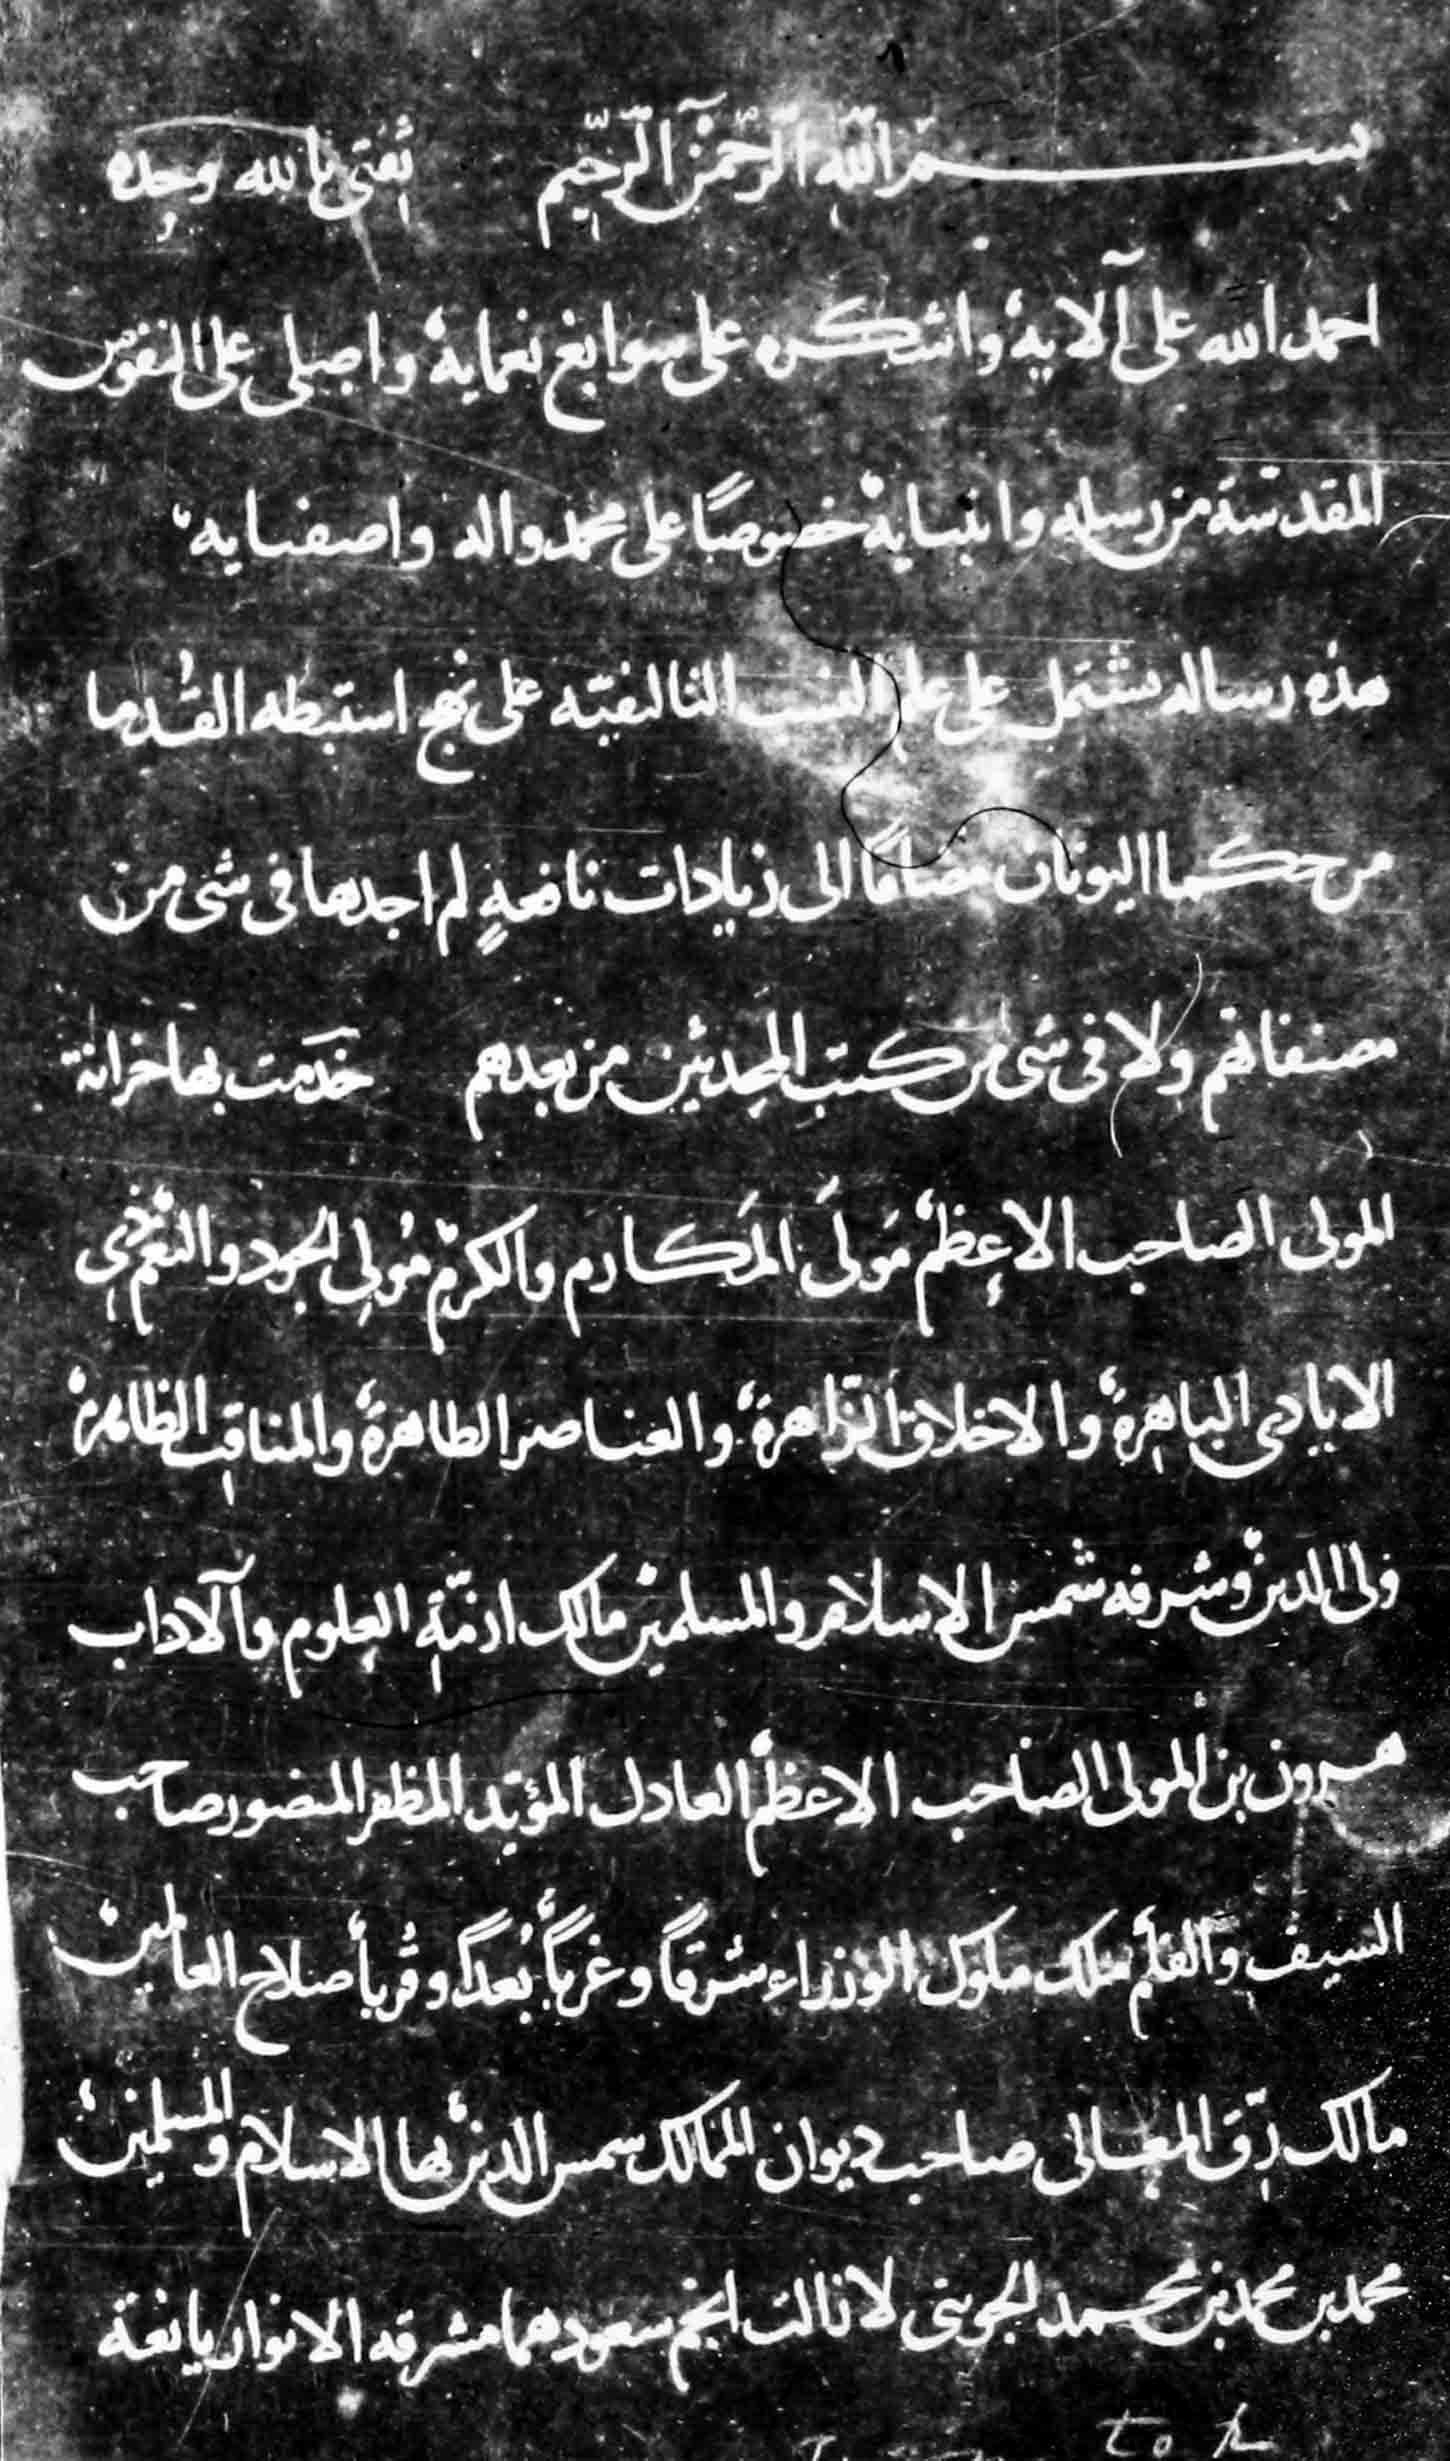 بسم اللّه الرّحمن الرّحيم ثقتى بالله وحده
احمد الله على آلايه واشكره على سوابغ نعمايه واصلى على النفوس
المقدّسة من رسله وانبيايه خصوصًا على محمد واله واصفيايه
هذه رساله تشتمل على علم النسب التاليفيّه على نهج استنبطه القُدما
من حكما اليونان مضافًا الى زيادات نافعةٍ لم اجدها فى شى من
مصنفاتهم ولا فى شى من كتب المحدثين من بعدهم خدَمت بها خزانة
المولى الصاحب الاعظم مَولَى المَكارم والكرم مُولِى الجود والنعم ذى
الايادى الباهرة والاخلاق الزّاهرة والعناصر الطاهرة والمناقب الظاهرة
ولى الدين وشرفه شمس الاسلام والمسلمين مالك ازمّةِ العلوم والآداب
هرون بن المولى الصاحب الاعظم العادل المؤيّد المظفر المنصور صاحب
السيف والقلم ملك ملوك الوزراء شرقاً وغرباً بُعداً وقُرباً صلاح العالمين
مالك رِقّ المعالى صاحب ديوان الممالك سمس الدين بها الاسلام والمسلمين
محمد بن محمد بن محمد الجوينى لا زالت انجم سعودهما مشرقه الانوار يانعة
to